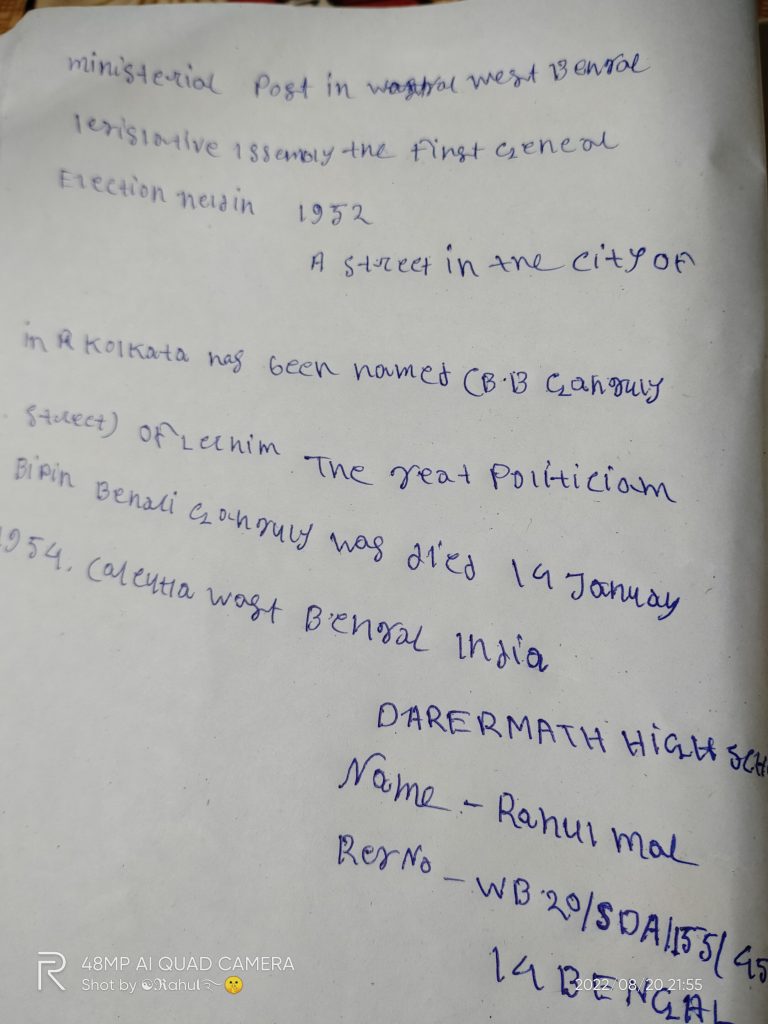 ministerial Post in west Bengal
legislative Assembly the First Geneal
Election held in 1952
A street in the city of
in Kolkata has been named (B.B Ganguly
street) of The great Politiciam
Bipin Behali Ganguly was died 14 January
1954. Calcutta wast Bengal India
DARERMATH HIGH SCH
Name - Rahul mal
Reg No - WB 20/SDA/155/45
14 BENGAL
48MP AI QUAD CAMERA
Shot by Rahul
2022/08/20 21:55